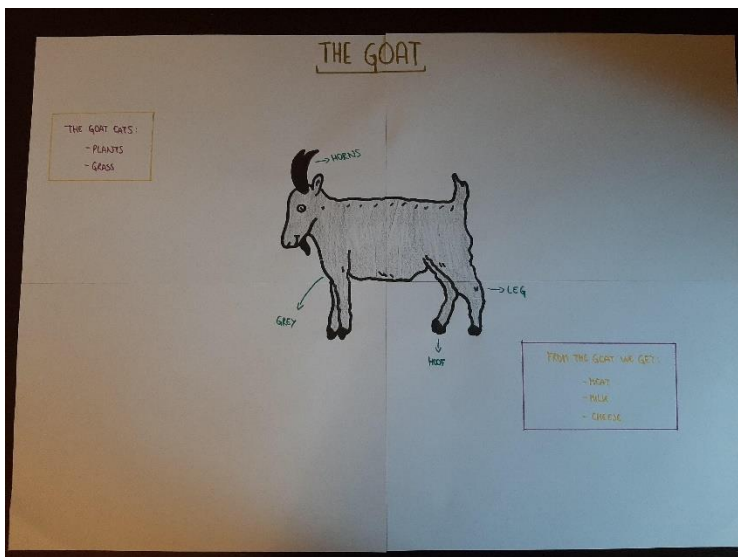 THE GOAT
THE GOAT EATS:
- PLANTS
- GRASS
HORNS
LEG
GREY
HOOF
FROM THE GOAT WE GET:
- MEAT
- MILK
- CHEESE